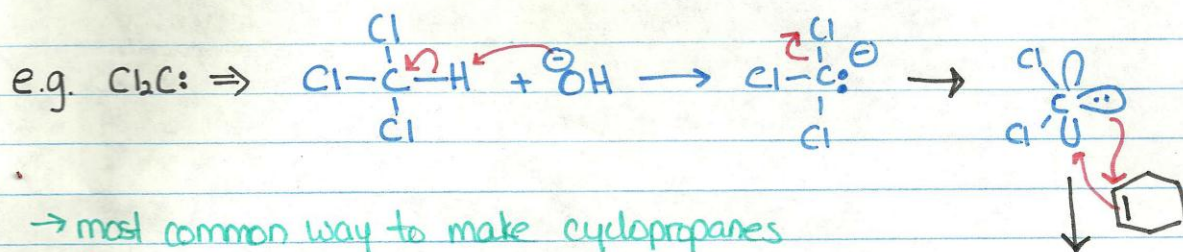 Cl Cl
e.g. Cl₂C: ⇒ Cl—C—H + ⊖OH ⟶ Cl—C:⊖ ⟶ Cl C:
Cl Cl Cl
→ most common way to make cyclopropanes